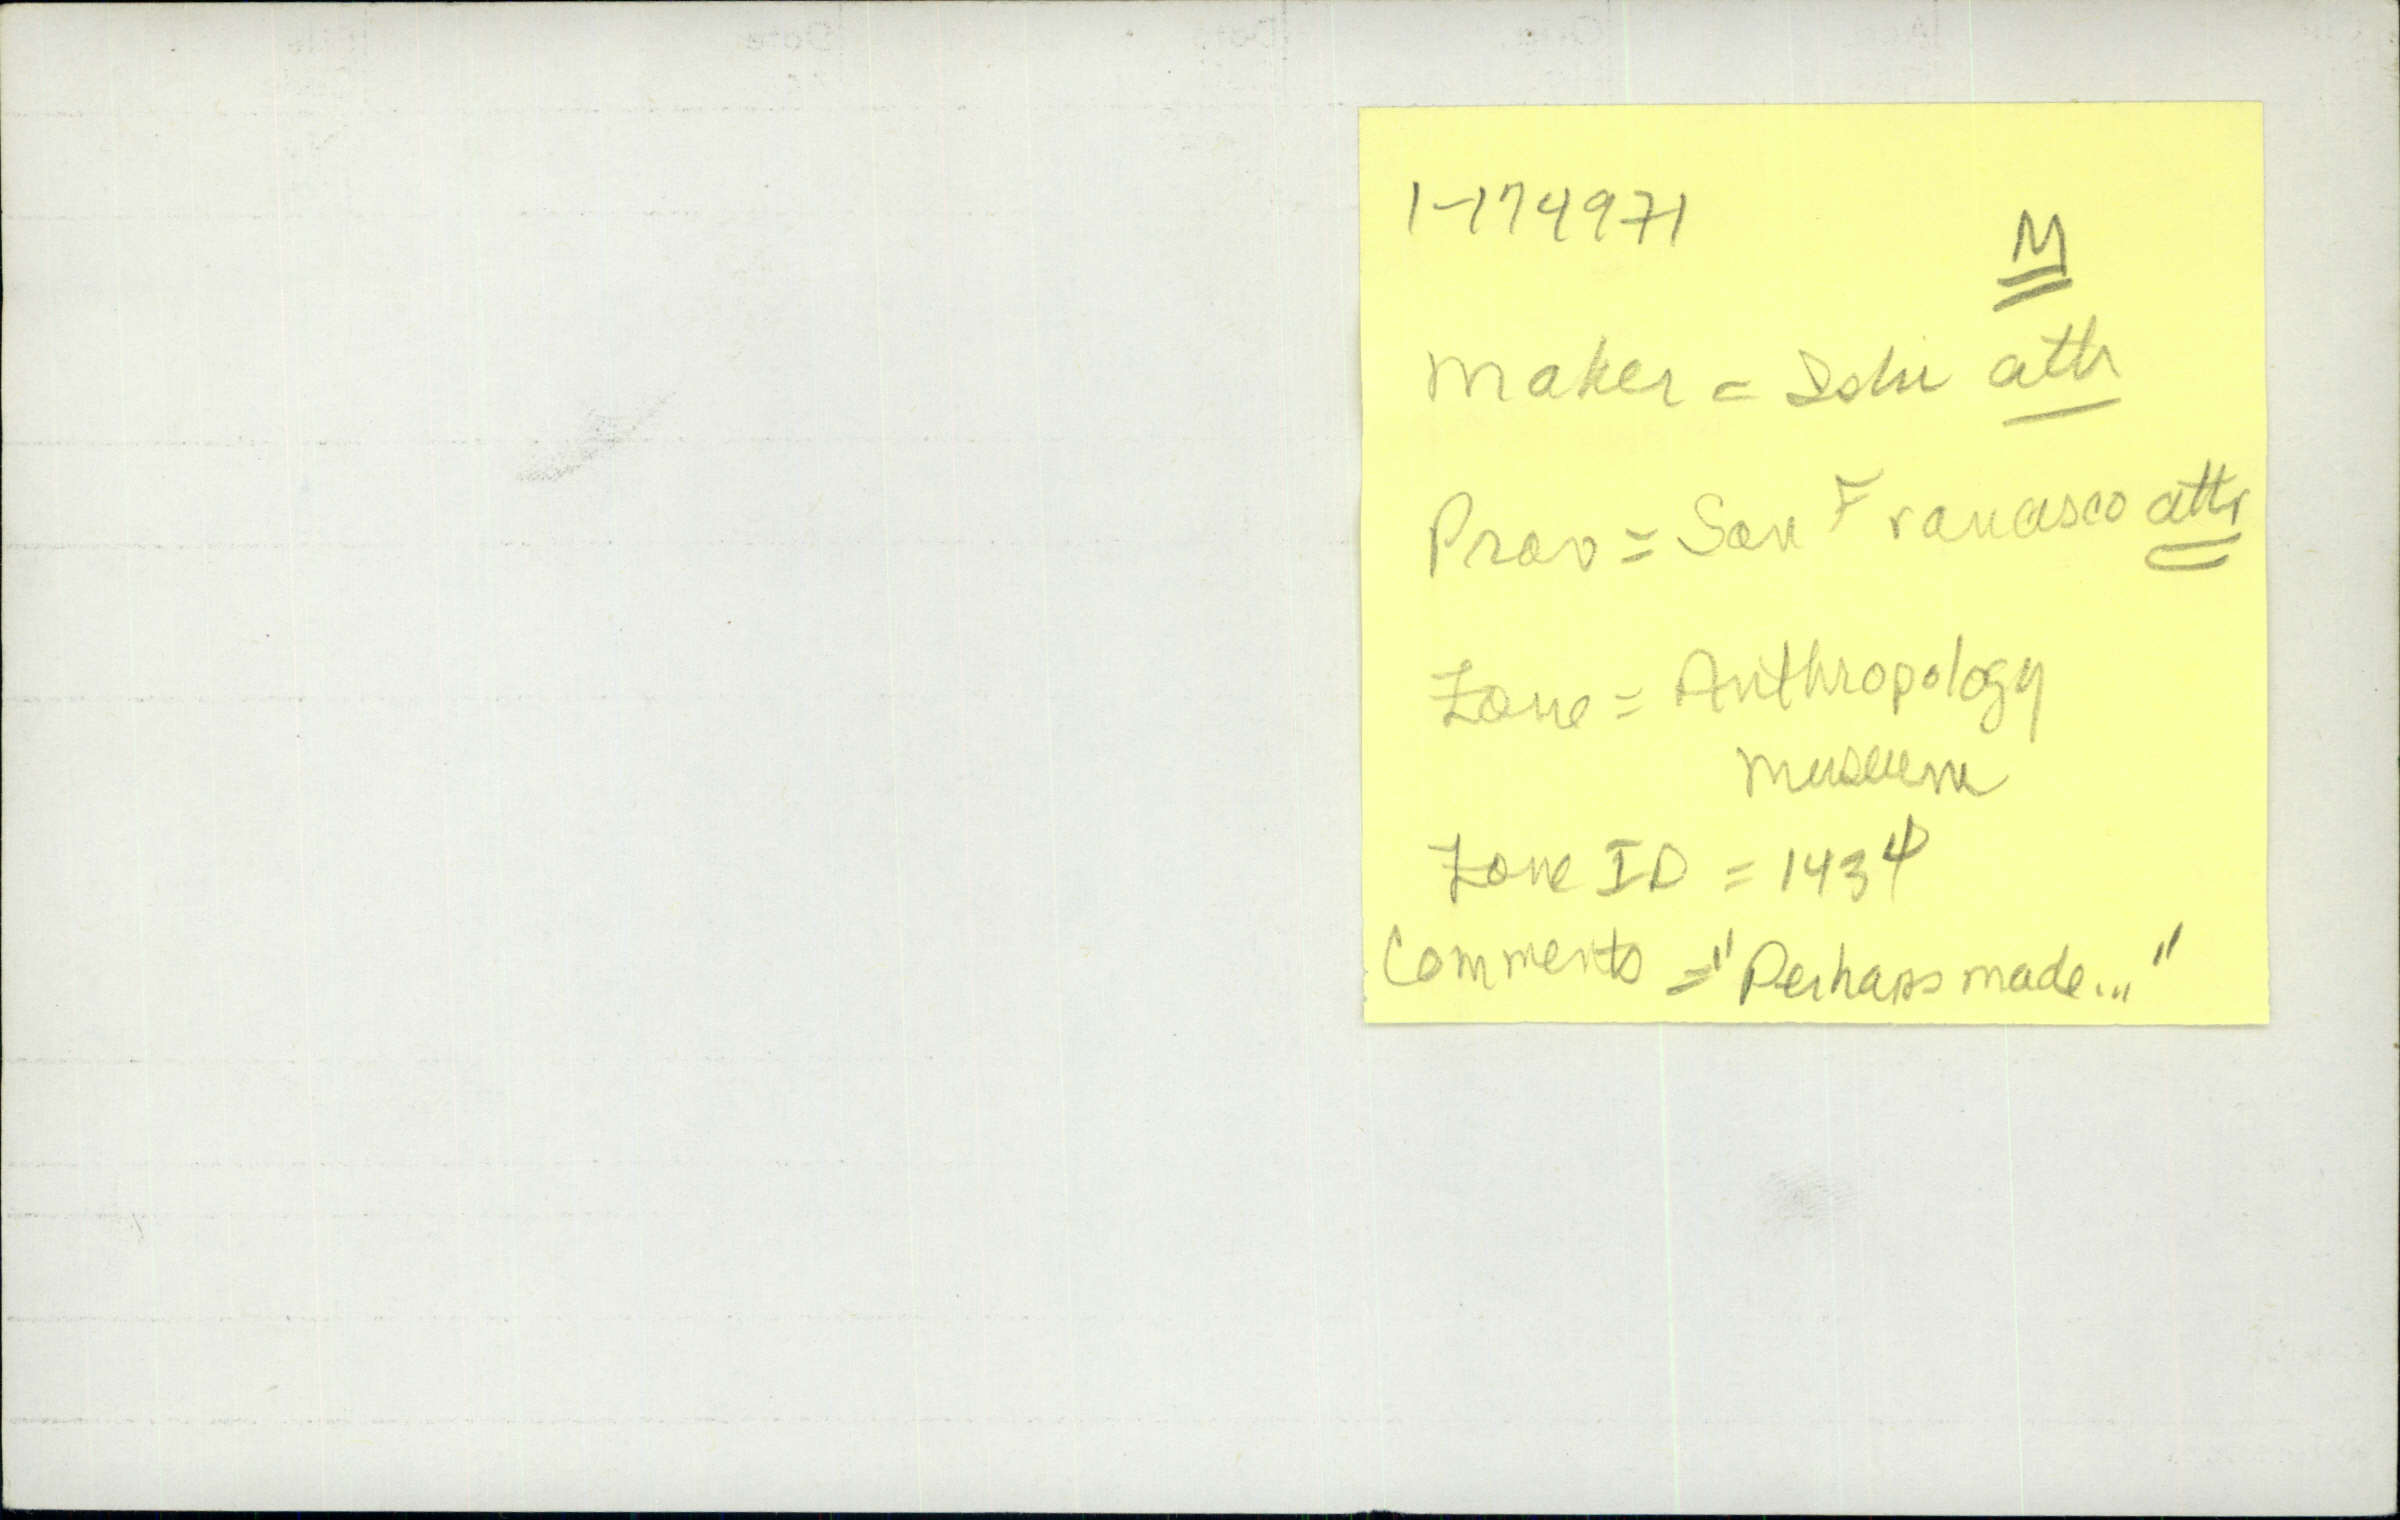 1-174971
M
Maker = Ishi attr
Prov = San Francisco attr
Zone = Anthropology
Museum
Zone ID = 1434
Comments = "Perhaps made..."